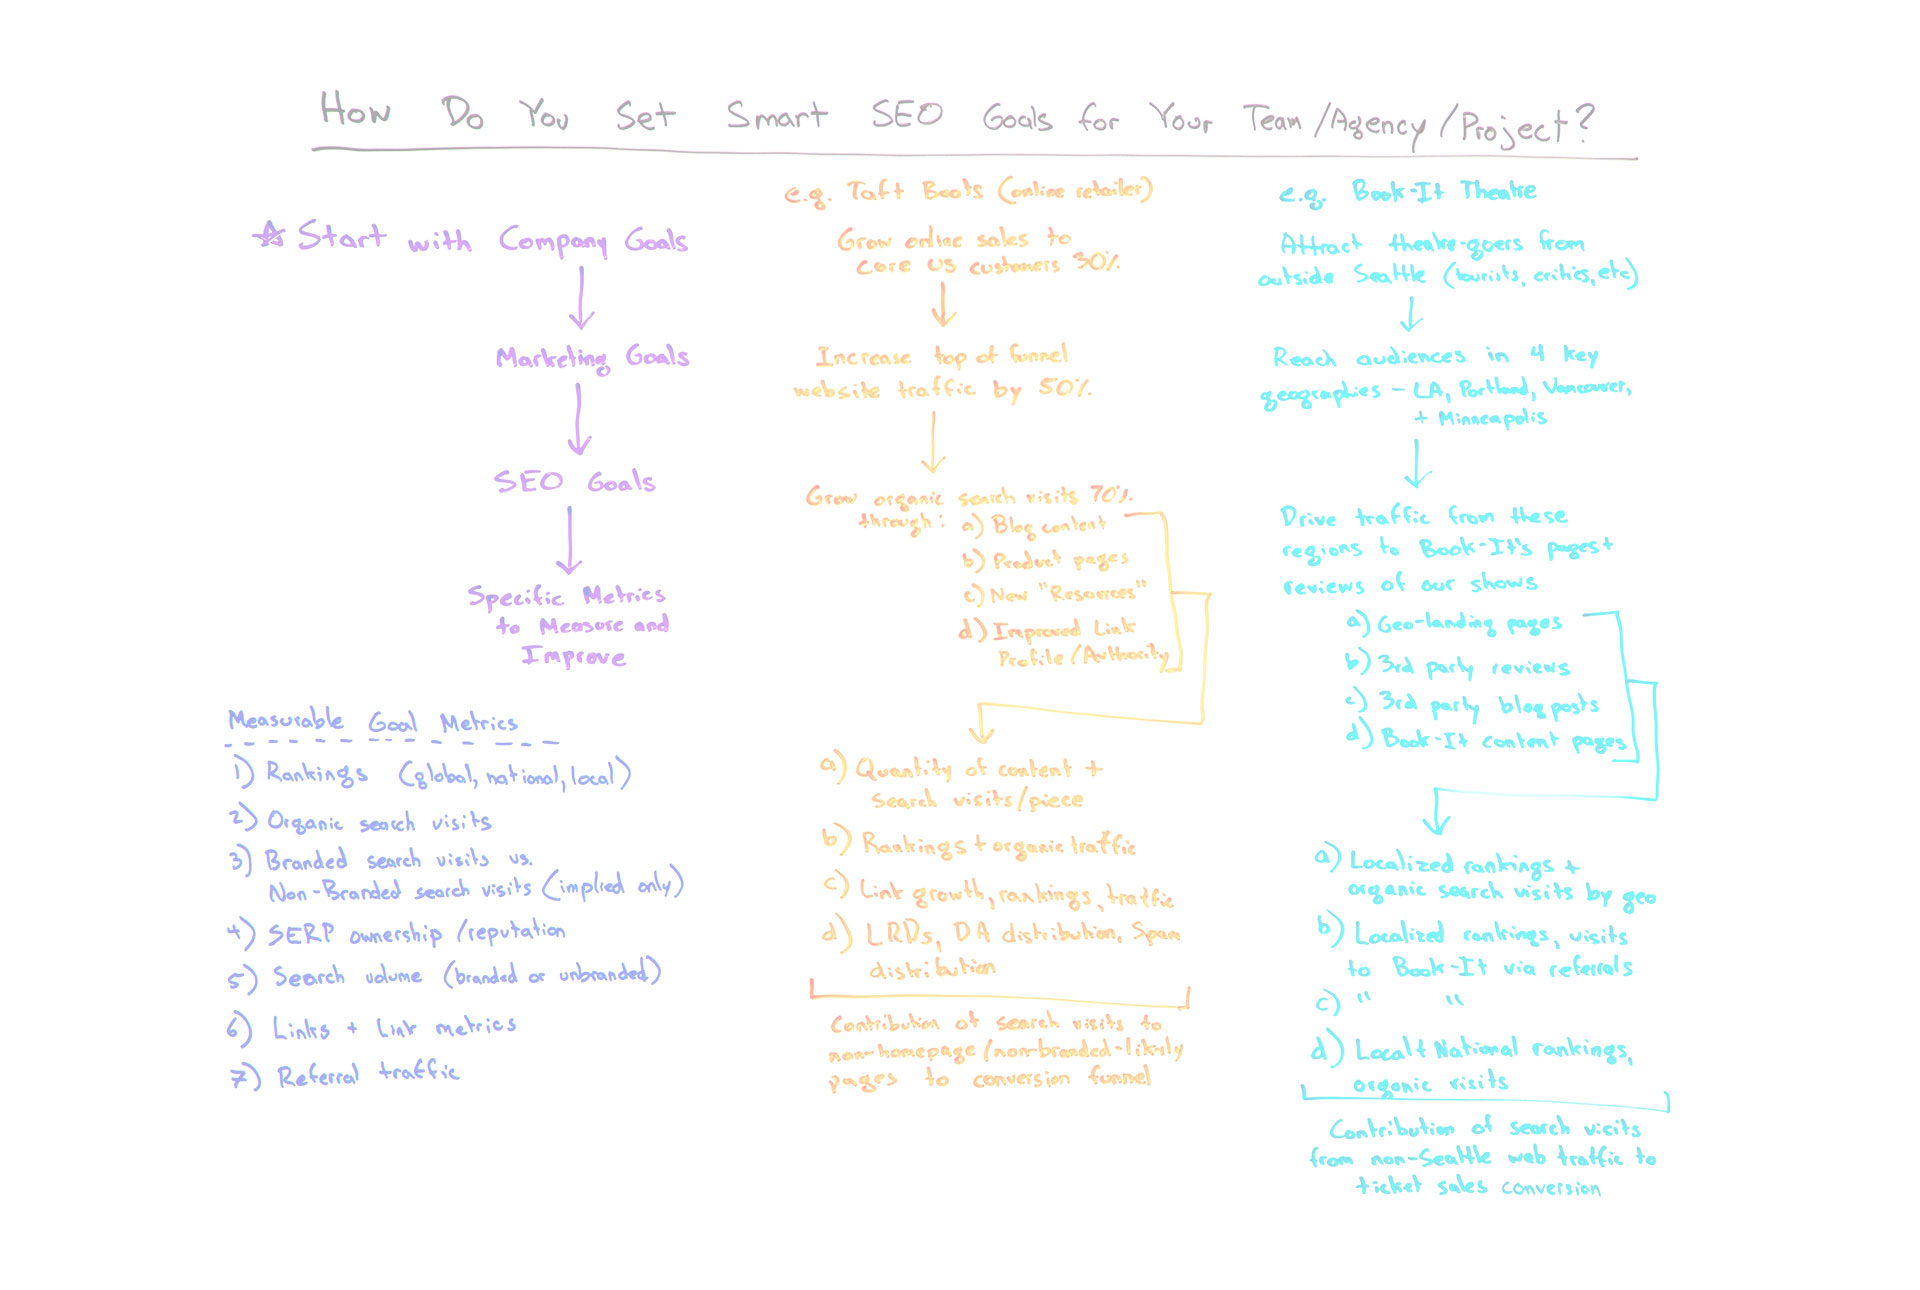 How Do You Set Smart SEO Goals for Your Team/Agency/Project?
☆ Start with Company Goals
Marketing Goals
SEO Goals
Specific Metrics
to Measure and
Improve
Measurable Goal Metrics
1) Rankings (global, national, local)
2) Organic search visits
3) Branded search visits vs.
Non-Branded search visits (implied only)
4) SERP ownership/reputation
5) Search volume (branded or unbranded)
6) Links + Link metrics
7) Referral traffic
e.g. Taft Boots (online retailer)
Grow online sales to
core US customers 30%
Increase top of funnel
website traffic by 50%
Grow organic search visits 70%
through: a) Blog content
b) Product pages
c) New "Resources"
d) Improved Link
Profile/Authority
a) Quantity of content +
search visits/piece
b) Rankings + organic traffic
c) Link growth, rankings, traffic
d) LRDs, DA distribution, Spam
distribution
Contribution of search visits to
non-homepage/non-branded-likely
pages to conversion funnel
e.g. Book-It Theatre
Attract theatre-goers from
outside Seattle (tourists, critics, etc)
Reach audiences in 4 key
geographies - LA, Portland, Vancouver,
+ Minneapolis
Drive traffic from these
regions to Book-It's pages +
reviews of our shows
a) Geo-landing pages
b) 3rd party reviews
c) 3rd party blog posts
d) Book-It content pages
a) Localized rankings +
organic search visits by geo
b) Localized rankings, visits
to Book-It via referrals
c) " "
d) Local + National rankings,
organic visits
Contribution of search visits
from non-Seattle web traffic to
ticket sales conversion